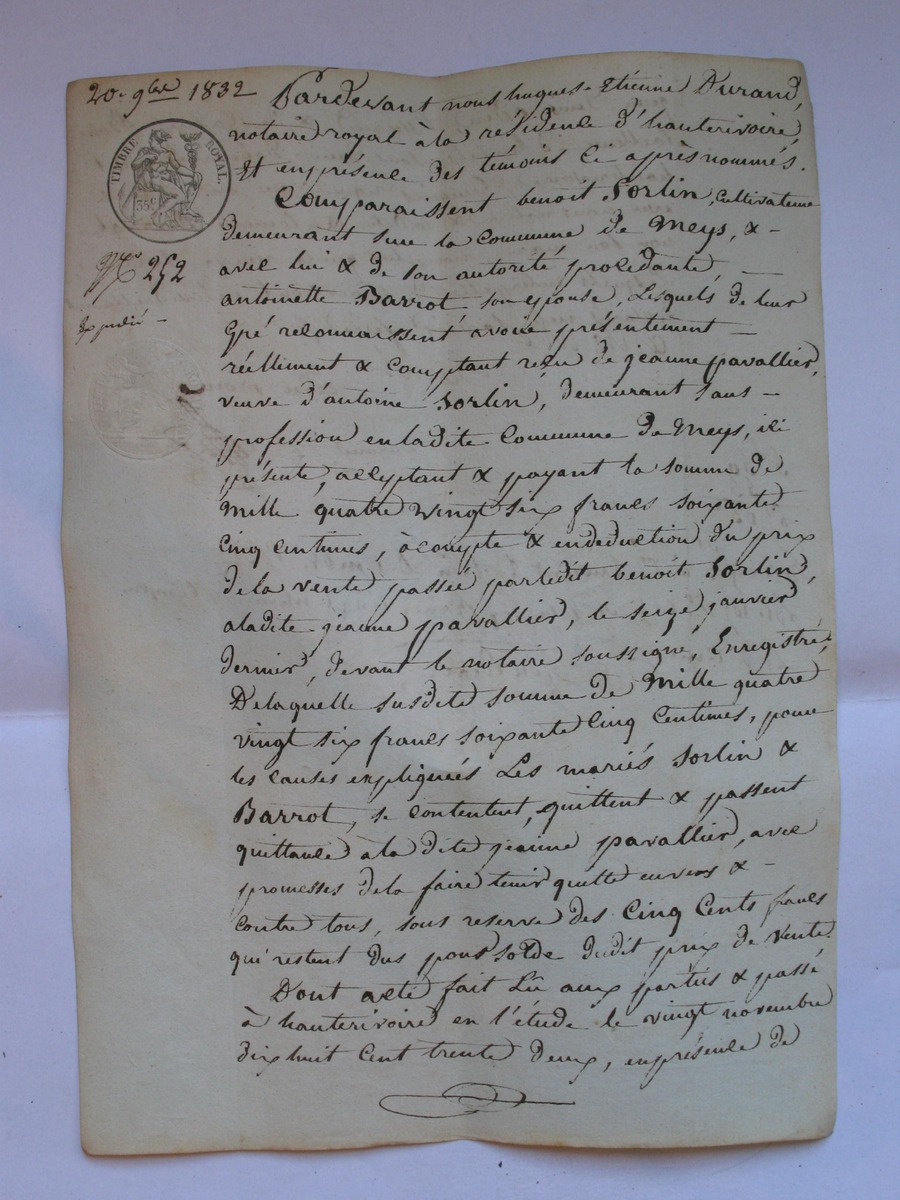 20. 9bre 1832
TIMBRE ROYAL.
35c
No 252
Expédié —
Pardevant nous hugues-Etienne Durand,
notaire royal à la résidence d'hauterivoire,
Et en présence des témoins Ci après nommés.
Comparaissent benoit Sorlin, Cultivateur
demeurant sur la Commune de Meys, & -
avec lui & de son autorité procédante, —
antoinette Barrot son epouse, Lesquels de leur
Gré reconnaissent avoir présentement —
réellement & Comptant reçu de jeanne pavallier,
veuve d'antoine Sorlin, demeurant sans -
profession en ladite Commune de Meys, ici
présente, acceptant & payant la somme de
Mille quatre Vingt six francs soixante
Cinq Centimes, àcompte & en deduction du prix
de la vente passée par ledit benoit Sorlin,
aladite jeanne pavallier, le seize janvier
dernier, devant le notaire soussigné, Enregistré,
De laquelle susdite somme de Mille quatre
vingt six francs soixante Cinq Centimes, pour
les causes expliquées Les mariés Sorlin &
Barrot, se contentent, quittent & passent
quittance à la dite jeanne pavallier, avec
promesses de la faire tenir quitte envers & -
Contre tous, sous reserve des Cinq Cents francs
qui restent dus pour solde dudit prix de Vente.
Dont acte fait Lu aux parties & passé
à hauterivoire en l'étude le vingt novembre
dix huit Cent trente deux, en présence de